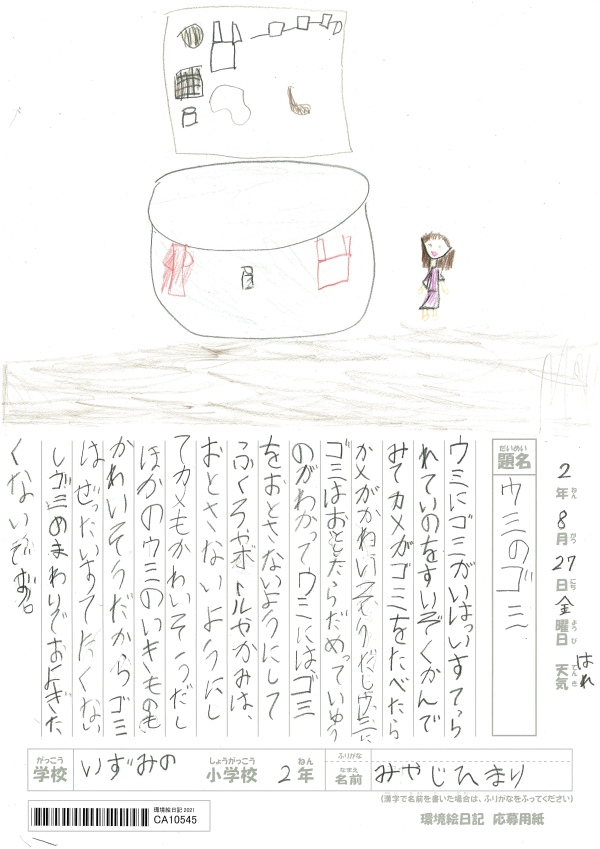 2年8月27日金曜日 天気 はれ
ねん がつ にち ようび てんき
だいめい
題名 ウミのゴミ
ウミにゴミがいぱっいすてら
れていのをすいぞくかんで
みてカメがゴミをたべたら
かメがかわいそうだしウミに
ゴミはおとしたらだめっていゆう
のがわかってウミにはゴミ
をおとさないようにして
ふくろやボトルやかみは、
おとさないようにし
てカメもかわいそうだし
ほかのウミのいきものも
かわいそうだからゴミ
はぜったいすてたくない
しゴミのまわりでおよぎた
くないです。
がっこう しょうがっこう ねん
学校 いずみの 小学校 2年
ふりがな
なまえ
名前 みやじひまり
(漢字で名前を書いた場合は、ふりがなをふってください)
環境絵日記 2021
CA10545
環境絵日記 応募用紙